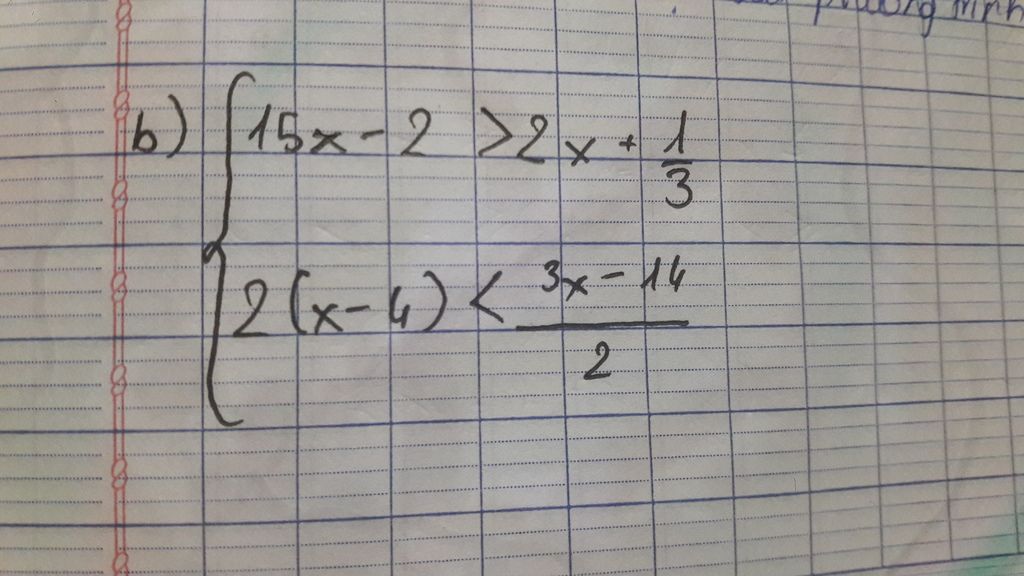 phương
b) { 15x - 2 > 2x + 1/3
2(x - 4) < (3x - 14)/2